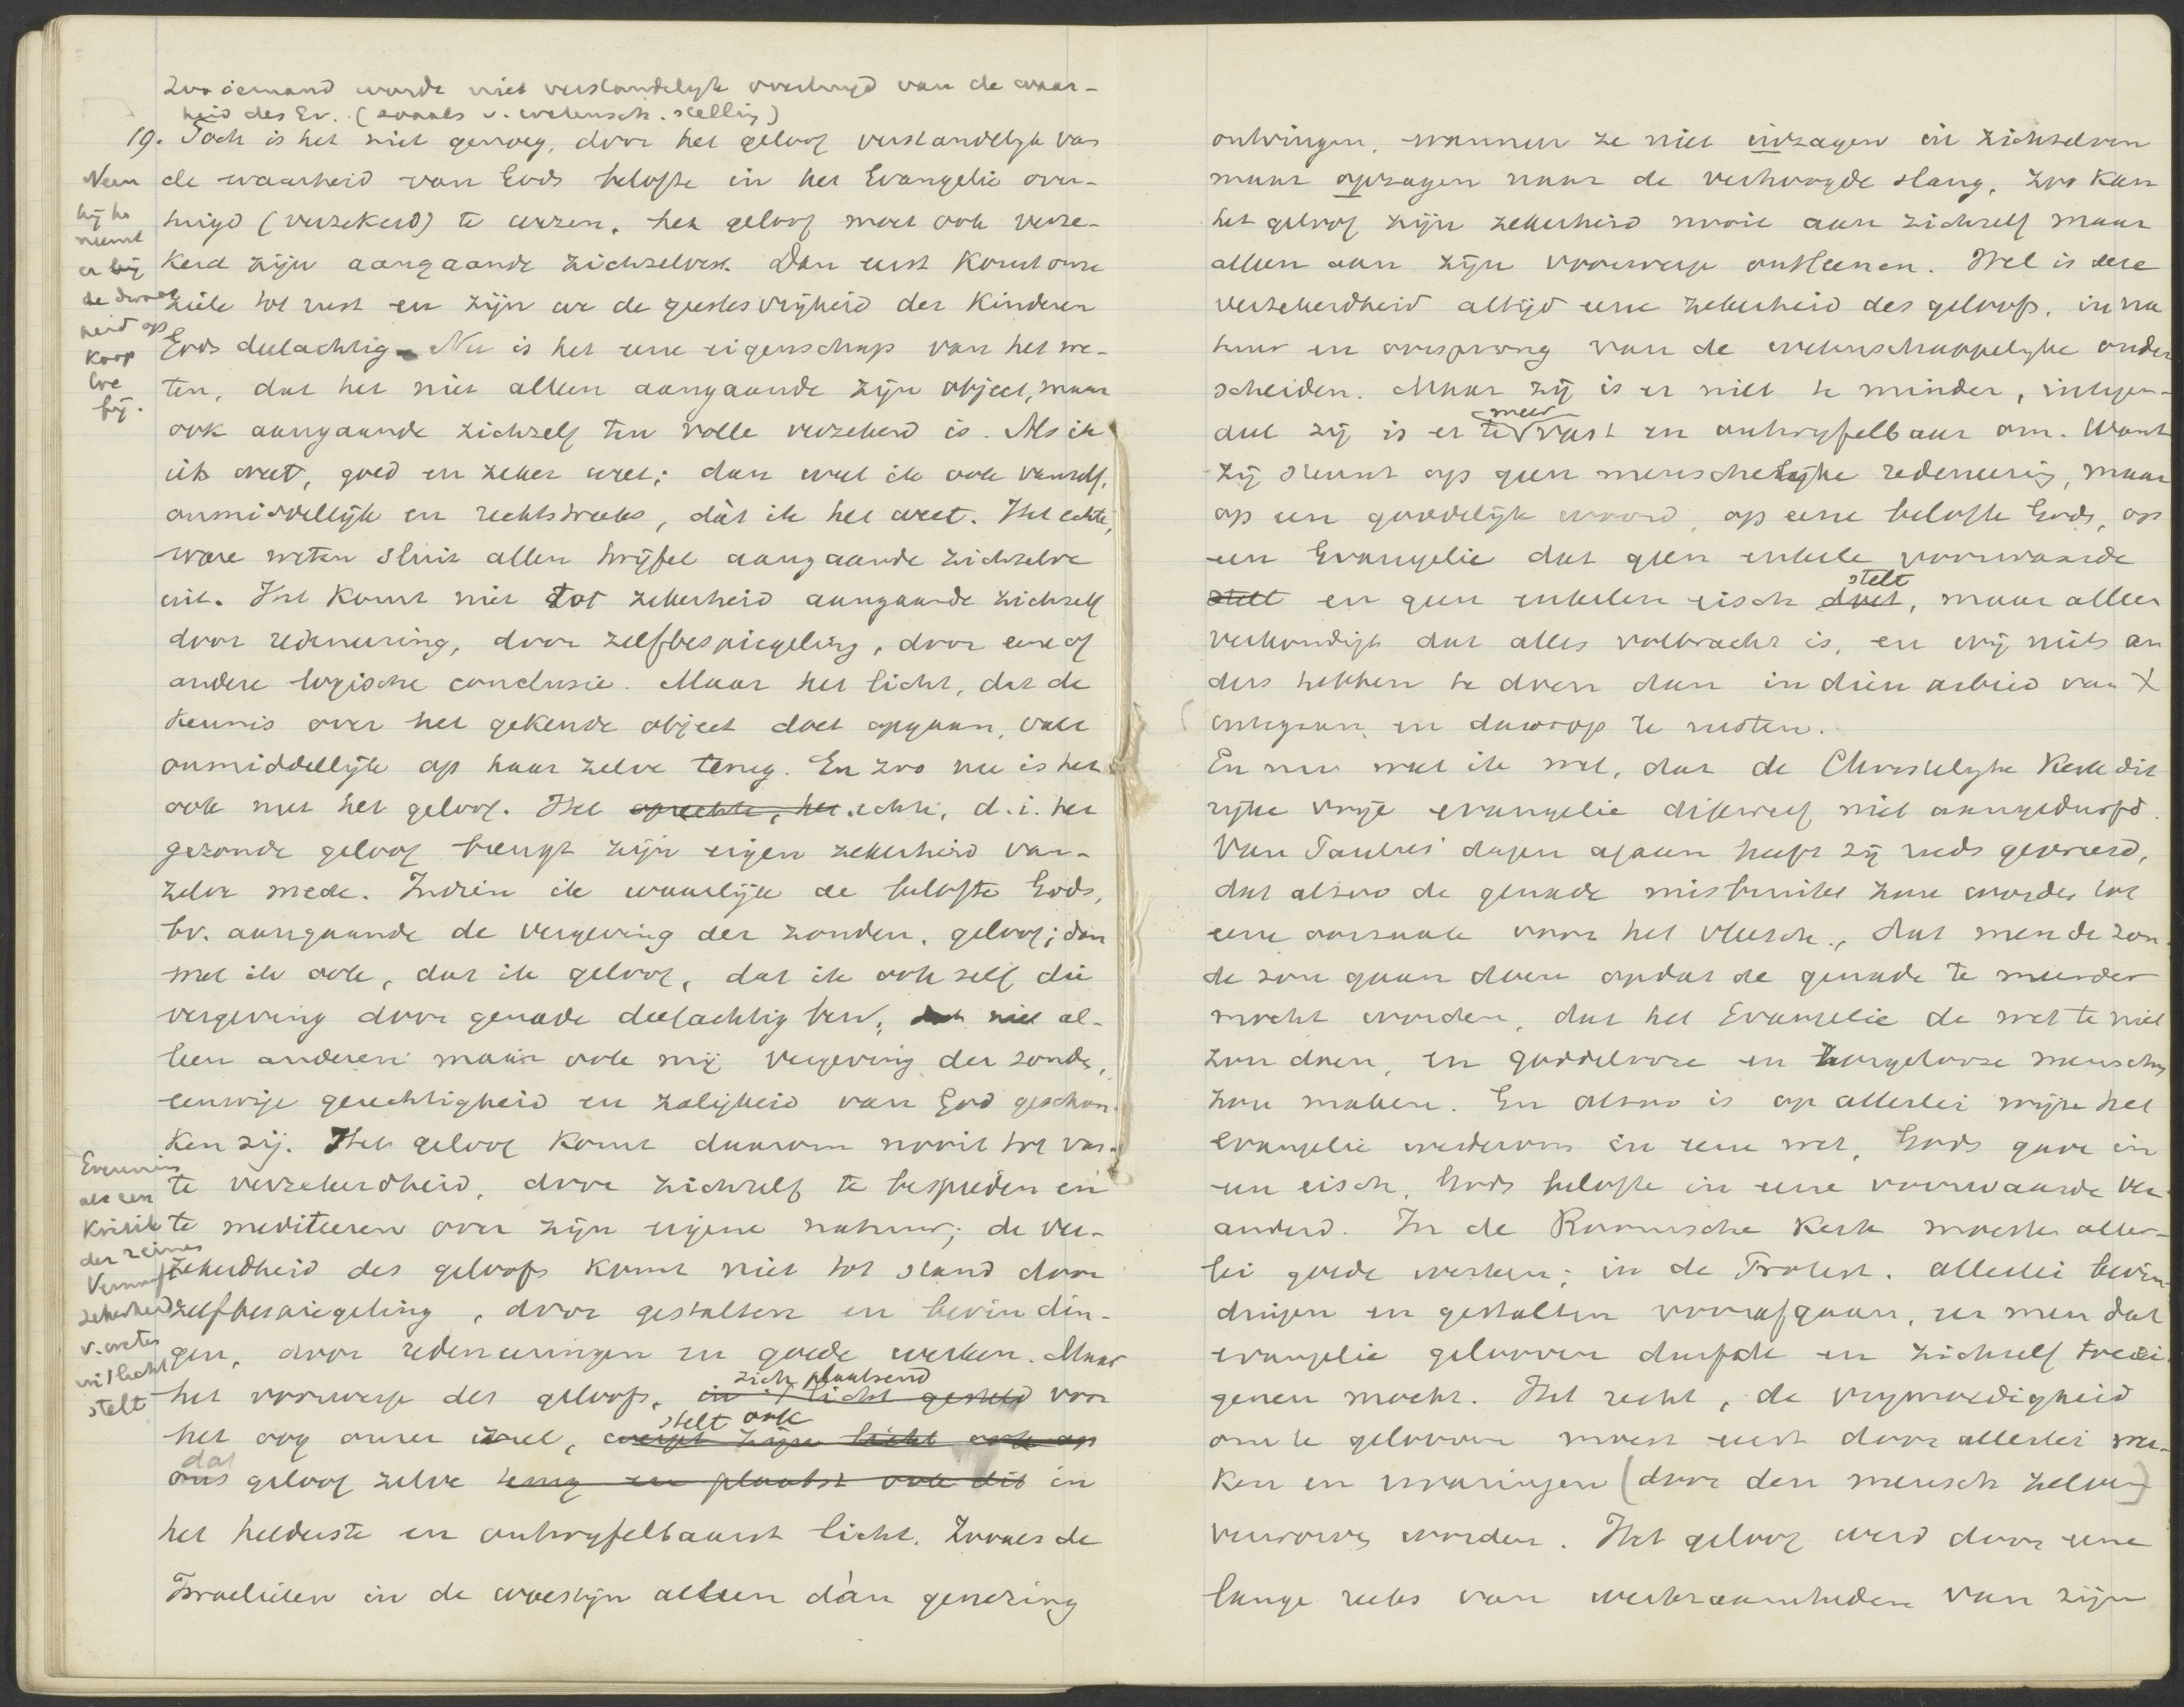 Zoo iemand wordt niet verstandelijk overtuigd van de waar-
heid des Ev. (zooals v. wetensch. stelling)
19. Toch is het niet genoeg, door het geloof verstandelijk van
de waarheid van Gods belofte in het Evangelie over-
tuigd (verzekerd) te wezen, het geloof moet ook verze-
kerd zijn aangaande zichzelven. Dan eerst komt onze
ziele tot rust en zijn we de geestesvrijheid der Kinderen
Gods deelachtig. Nu is het eene eigenschap van het we-
ten, dat het niet alleen aangaande zijn object, maar
ook aangaande zichzelf ten volle verzekerd is. Als ik
iets weet, goed en zeker weet; dan weet ik ook vanzelf,
onmiddellijk en rechtstreeks, dàt ik het weet. Het echte,
ware weten sluit allen twijfel aangaande zichzelve
uit. Het komt niet tot zekerheid aangaande zichzelf
door redeneering, door zelfbespiegeling, door eene of
andere logische conclusie. Maar het licht, dat de
kennis over het gekende object doet opgaan, valt
onmiddellijk op haar zelve terug. En zoo nu is het
ook met het geloof. Het oprechte, het echte, d.i. het
gezonde geloof brengt zijn eigen zekerheid van-
zelve mede. Indien ik waarlijk de belofte Gods,
bv. aangaande de vergeving der zonden, geloof; dan
weet ik ook, dat ik geloof, dat ik ook zelf die
vergeving door genade deelachtig ben, dat niet al-
leen anderen maar ook mij vergeving der zonde,
eeuwige gerechtigheid en zaligheid van God geschon-
ken zij. Het geloof komt daarom nooit tot vas-
te verzekerdheid, door zichzelf te bespieden en
te mediteeren over zijn eigene natuur; de ver-
zekerdheid des geloofs komt niet tot stand door
zelfbespiegeling, door gestalten en bevindin-
gen, door redeneeringen en goede werken. Maar
zich plaatsend
het voorwerp des geloofs, in 't licht gesteld voor
stelt ook
het oog onzer ziel, werpt zijn licht ook op
dat
ons geloof zelve terug en plaatst ook dit in
het helderste en ontwyfelbaarst licht. Zooals de
Israelieten in de woestijn alleen dàn genezing
Neen
hij he
neemt
er bij
de dwaas
heid op
koop
toe
bij.
Evenmin
als een
Kritik
der reinen
Vernunft
zekerheid
v. weten
in 't licht
stelt
ontvingen, wanneer ze niet inzagen in zichzelven
maar opzagen naar de verhoogde slang, zoo kan
het geloof zijn zekerheid nooit aan zichzelf maar
alleen aan zijn voorwerp ontleenen. Wel is deze
verzekerdheid altijd eene zekerheid des geloofs, in na
tuur en oorsprong van de wetenschappelyke onder
scheiden. Maar zij is er niet te minder, integen-
meer
deel zij is er te vast en ontwyfelbaar om. Want
zij steunt op geen menschelijke redeneering, maar
op een goddelijk woord, op eene belofte Gods, op
een Evangelie dat geen enkele voorwaarde
stelt
stelt en geen enkelen eisch doet, maar alleen
verkondigt dat alles volbracht is, en wij niets an
ders hebben te doen dan in dien arbeid van X
in te gaan en daarop te rusten.
En nu weet ik wel, dat de Christelyke Kerk dit
rijke vrije evangelie dikwerf niet aangedurfd.
Van Paulus' dagen afaan heeft zij reeds gevreesd,
dat alzoo de genade misbruikt zou worden tot
eene oorzaak voor het vleesch, dat men de zon
de zou gaan doen opdat de genade te meerder
mocht worden, dat het Evangelie de wet te niet
zou doen, en goddelooze en zorgelooze menschen
zou maken. En alzoo is op allerlei wijze het
evangelie wederom in eene wet, Gods gave in
een eisch, Gods belofte in eene voorwaarde ver
anderd. In de Roomsche kerk moesten aller-
lei goede werken; in de Protest. allerlei bevin-
dingen en gestalten voorafgaan, eer men dat
evangelie gelooven durfde en zichzelf toeëi-
genen mocht. Het recht, de vrymoedigheid
om te gelooven moest eerst door allerlei wer-
ken en ervaringen (door den mensch zelven)
verworven worden. Het geloof werd door eene
lange reeks van werkzaamheden van zijn